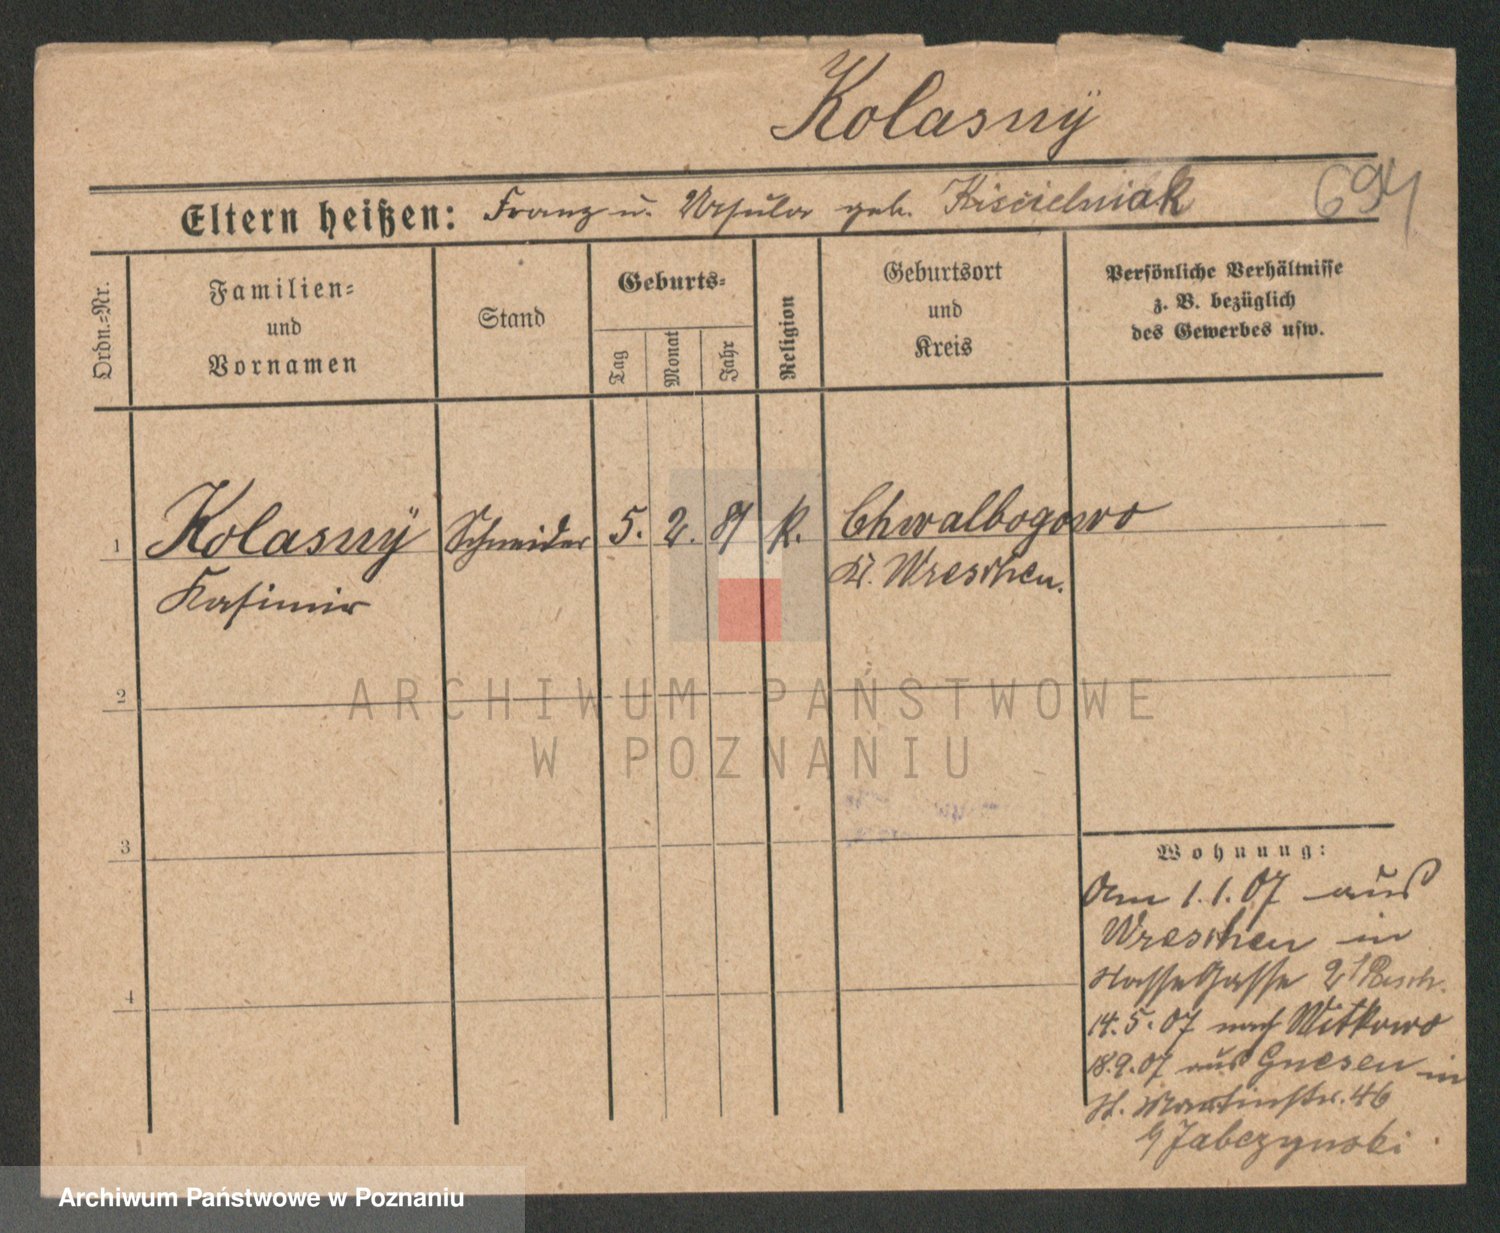 Kolasnÿ
694
Eltern heißen: Franz u. Ursula geb. Kiscielniak
Ordn.-Nr.
Familien- und Vornamen
Stand
Geburts-
Tag
Monat
Jahr
Religion
Geburtsort und Kreis
Persönliche Verhältnisse z. B. bezüglich des Gewerbes usw.
1 Kolasnÿ Schneider 5. 2. 87 k. Chwalbogowo
Kasimir Kr. Wreschen.
2
ARCHIWUM PAŃSTWOWE
W POZNANIU
3
Wohnung:
Am 1.1.07 aus
Wreschen in
Gasse 2
14.5.07 nach Witkowo
18.9.07 aus Gnesen in
St. Martinstr. 46
b/ Jabczynski
4
Archiwum Państwowe w Poznaniu